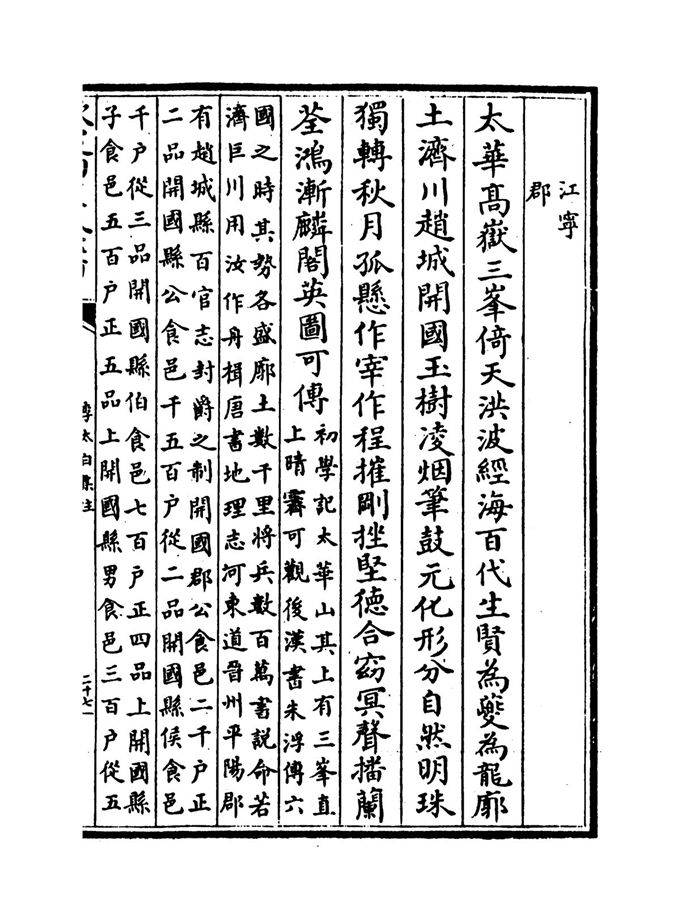 江寧
郡
太華髙嶽三峯倚天洪波經海百代生賢為夔為龍廓
土濟川趙城開國玉樹凌烟筆鼓元化形分自然明珠
獨轉秋月孤懸作宰作程摧剛挫堅徳合窈冥聲播蘭
荃鴻漸麟閣英圖可傳
初學記太華山其上有三峯直
上晴霽可觀後漢書朱浮傳六
國之時其勢各盛廓土數千里將兵數百萬書説命若
濟巨川用汝作舟楫唐書地理志河東道晉州平陽郡
有趙城縣百官志封爵之制開國郡公食邑二千户正
二品開國縣公食邑千五百户從二品開國縣侯食邑
千户從三品開國縣伯食邑七百户正四品上開國縣
子食邑五百户正五品上開國縣男食邑三百户從五
李太白集注
二十七